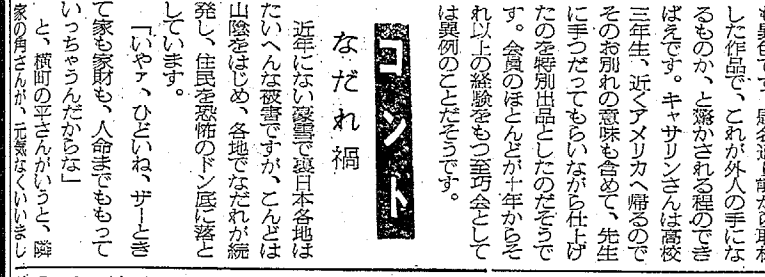 も異色です。
した作品で、これが外人の手にな
るものか、と驚かされる程のでき
ばえです。キャサリンさんは高校
三年生、近くアメリカへ帰るので
そのお別れの意味も含めて、先生
に手つだってもらいながら仕上げ
たのを特別出品としたのだそうで
す。会員のほとんどが十年からそ
れ以上の経験をもつ至巧会として
は異例のことだそうです。
コント
なだれ禍
近年にない豪雪で裏日本各地は
たいへんな被害ですが、こんどは
山陰をはじめ、各地でなだれが続
発し、住民を恐怖のドン底に落と
しています。
「いやァ、ひどいね、ザーとき
て家も家財も、人命までももって
いっちゃうんだからな」
と、横町の平さんがいうと、隣
家の角さんが、元気なくいいまし